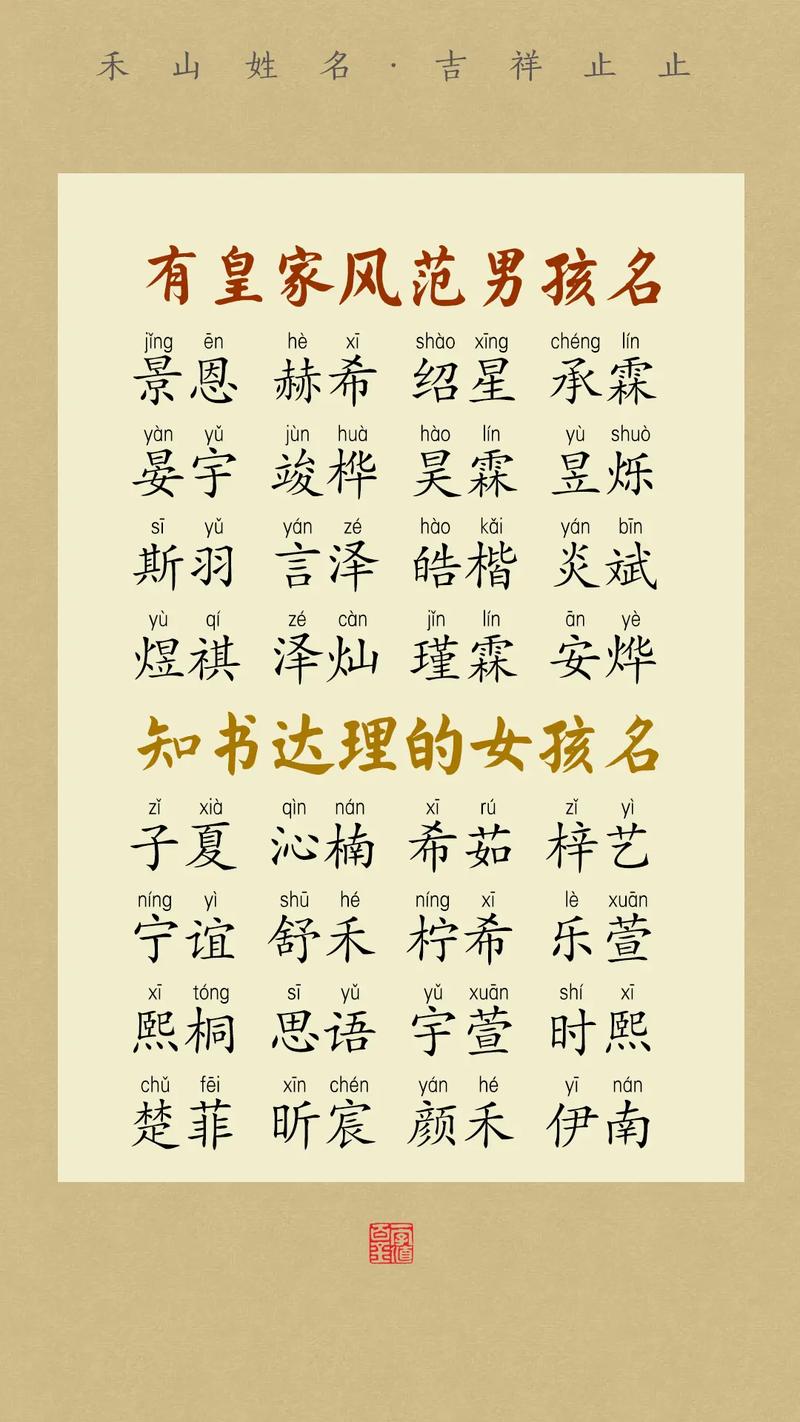 禾山姓名·吉祥止止
有皇家风范男孩名
jǐng ēn hè xī shào xīng chéng lín
景恩 赫希 绍星 承霖
yàn yǔ jùn huà hào lín yù shuò
晏宇 竣桦 昊霖 昱烁
sī yǔ yán zé hào kǎi yán bīn
斯羽 言泽 皓楷 炎斌
yù qí zé càn jǐn lín ān yè
煜祺 泽灿 瑾霖 安烨
知书达理的女孩名
zǐ xià qìn nán xī rú zǐ yì
子夏 沁楠 希茹 梓艺
níng yì shū hé níng xī lè xuān
宁谊 舒禾 柠希 乐萱
xī tóng sī yǔ yǔ xuān shí xī
熙桐 思语 宇萱 时熙
chǔ fēi xīn chén yán hé yī nán
楚菲 昕宸 颜禾 伊南